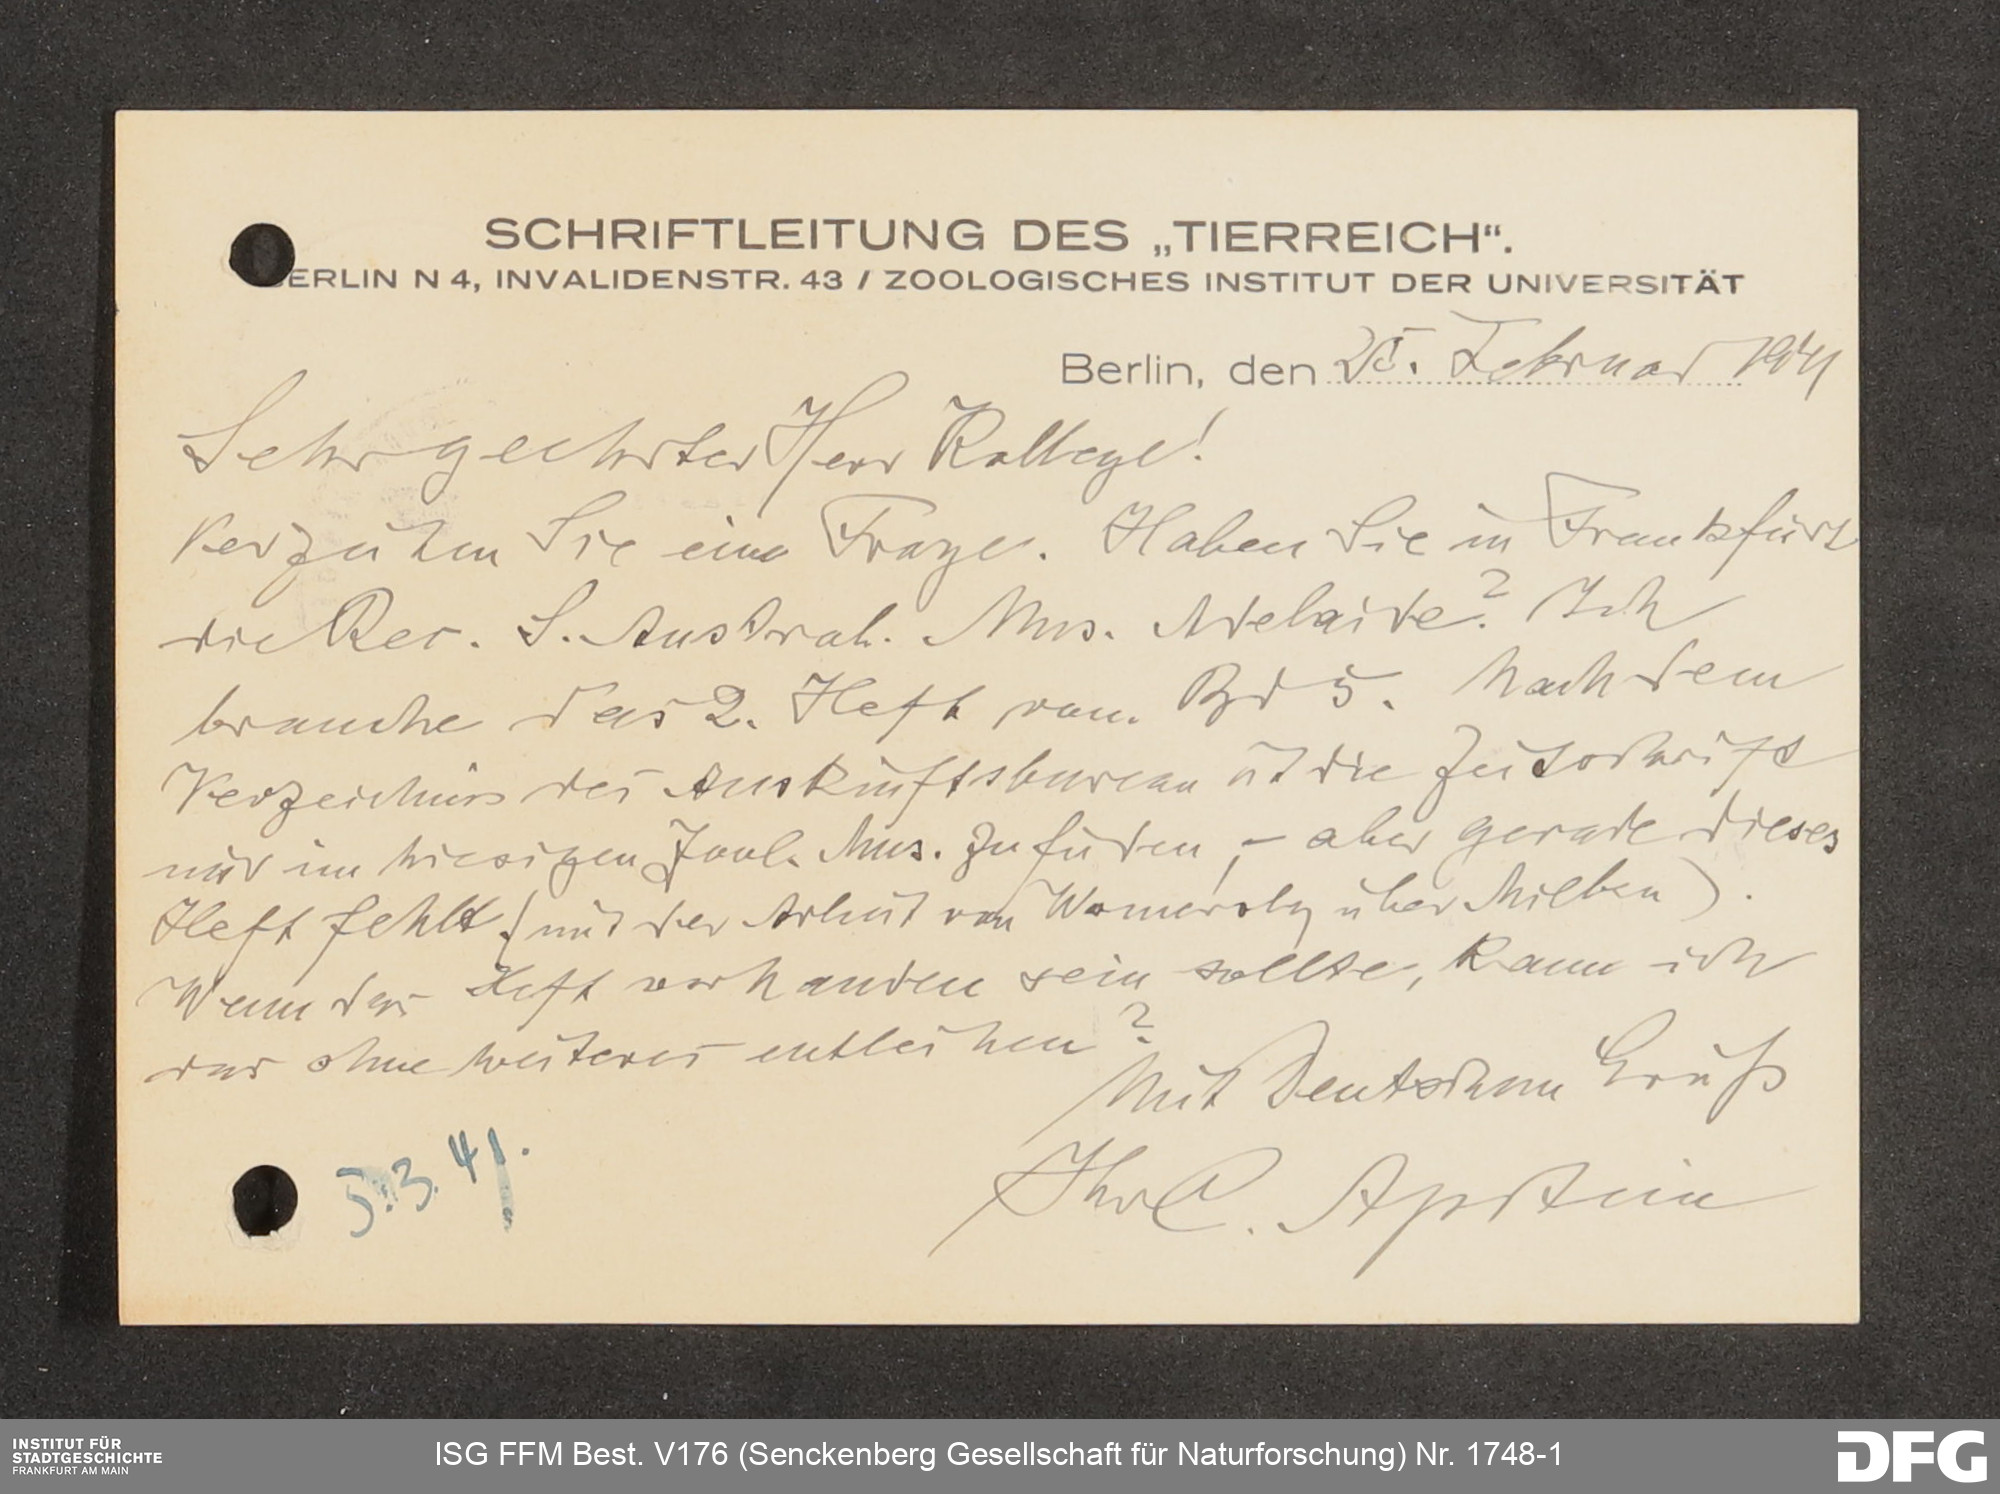 SCHRIFTLEITUNG DES „TIERREICH“.
BERLIN N 4, INVALIDENSTR. 43 / ZOOLOGISCHES INSTITUT DER UNIVERSITÄT
Berlin, den 25. Februar 1941
Sehr geehrter Herr Kollege!
Verzeihen Sie eine Frage. Haben Sie in Frankfurt
die Rec. S. Austral. Mus. Adelaide? Ich
brauche das 2. Heft von Bd 5. Nach dem
Verzeichnis des Auskunftsbureau ist die Zeitschrift
nur im hiesigen Zool. Mus. zu finden, – aber gerade dieses
Heft fehlt (mit der Arbeit von Womersley über Milben).
Wenn das Heft vorhanden sein sollte, kann ich
das ohne weiteres entleihen?
Mit Deutschem Gruß
Ihr C. Apstein
5.3.41.
INSTITUT FÜR
STADTGESCHICHTE
FRANKFURT AM MAIN
ISG FFM Best. V176 (Senckenberg Gesellschaft für Naturforschung) Nr. 1748-1
DFG